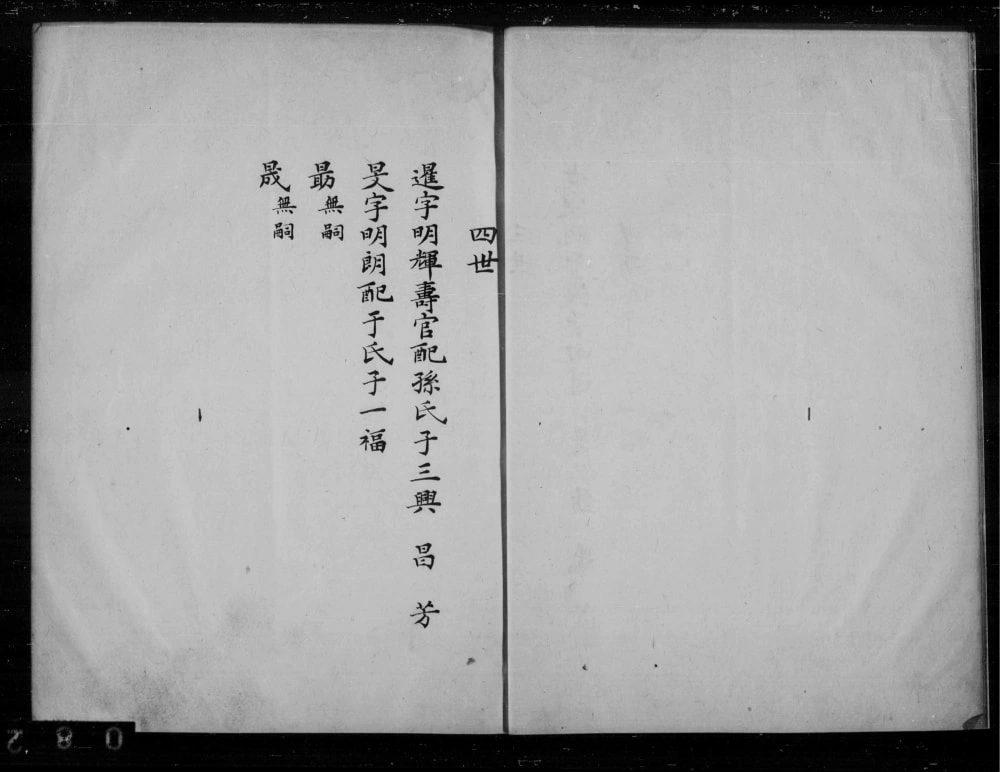 四世
暹字明輝壽官配孫氏子三興 昌 芳
旻字明朗配于氏子一福
勗無嗣
晟無嗣
082